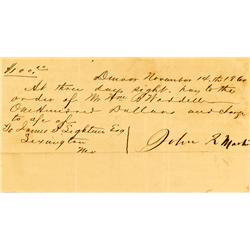 $100.00 Denver November 14.th 1860
At three days sight, pay to the
order of Mr Wm B Waddell
One Hundred Dollars and charge
to a/c of
To James S Lightner Esq
Lexington
Mo
John R